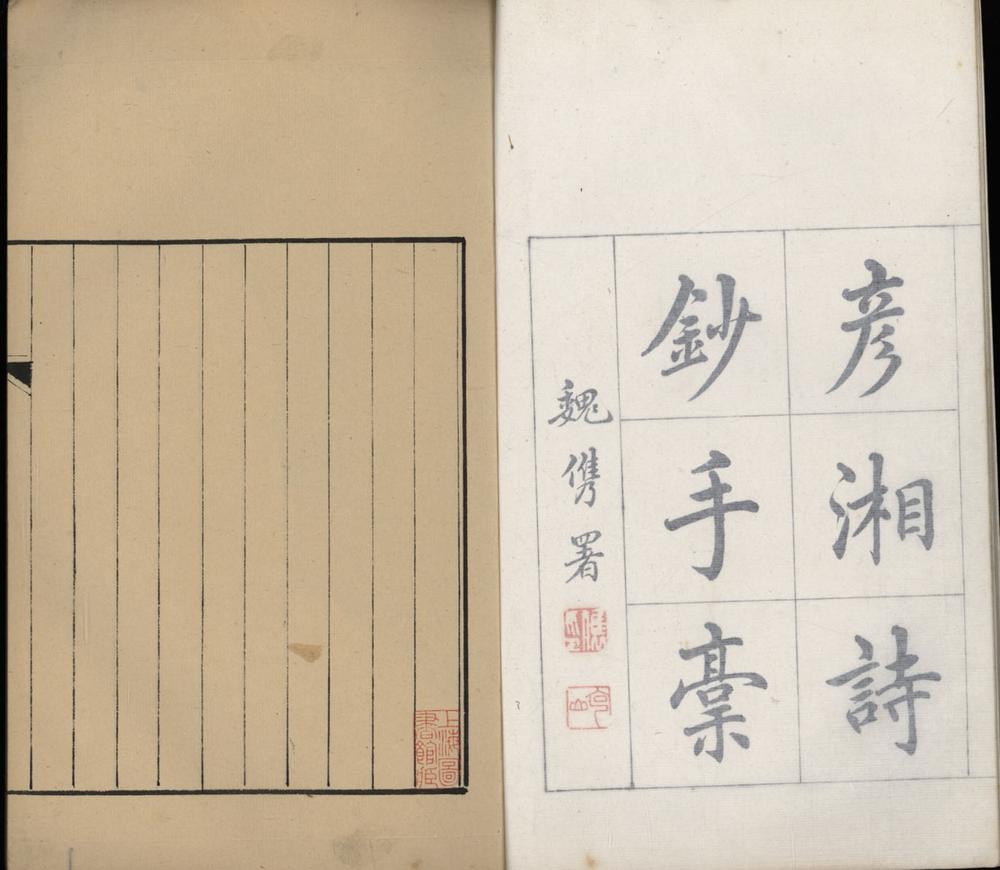 彦湘詩
鈔手稾
魏儁署
上海圖
書館臧